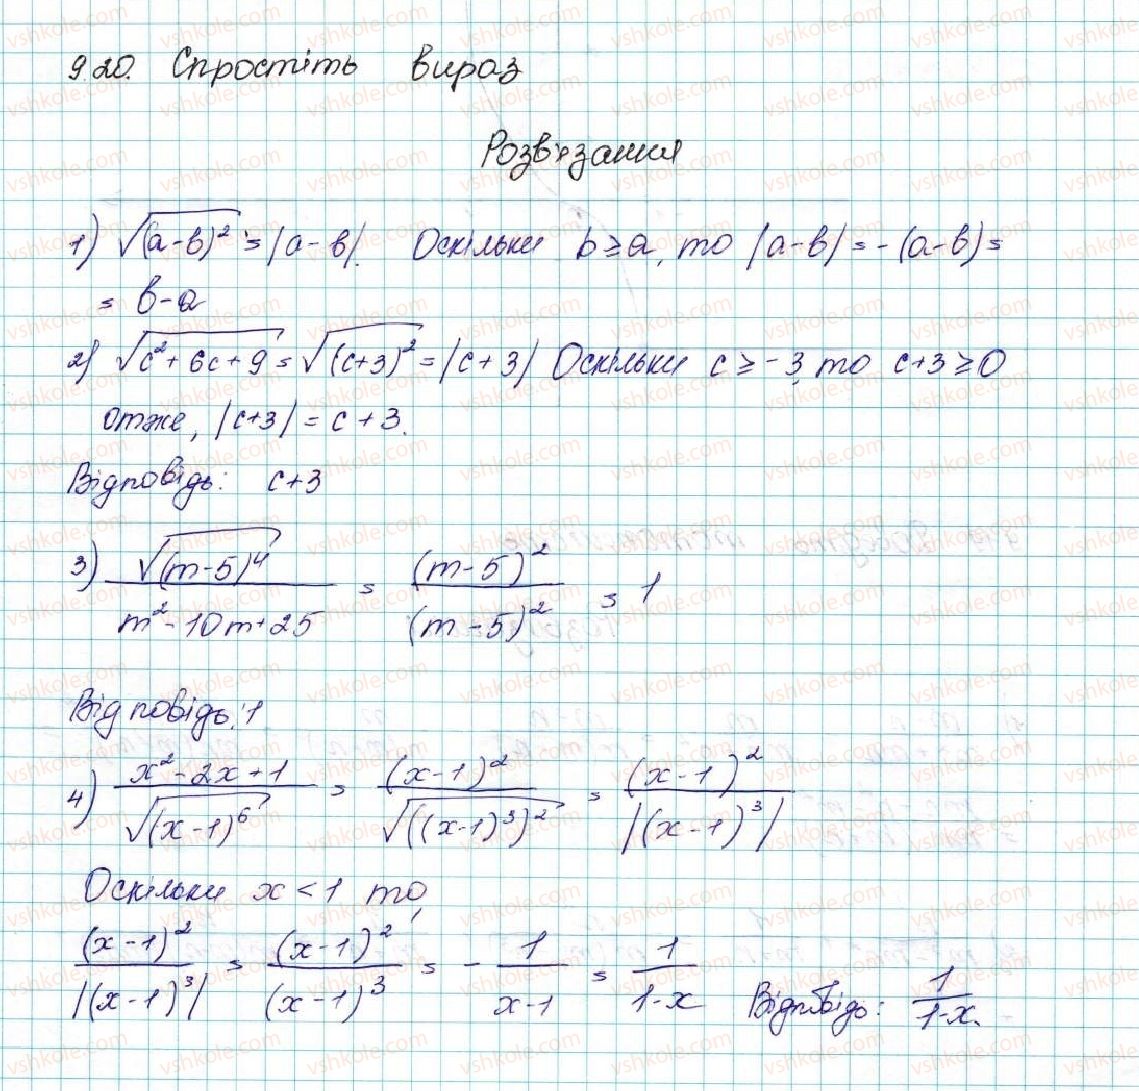 9.20. Спростіть вираз
Розв'язання
1) √(a-b)² = |a-b|. Оскільки b ≥ a, то |a-b| = -(a-b) =
= b-a
2) √c²+6c+9 = √(c+3)² = |c+3| Оскільки c ≥ -3, то c+3 ≥ 0
отже, |c+3| = c+3.
Відповідь: c+3
3) √(m-5)⁴ / m²-10m+25 = (m-5)² / (m-5)² = 1
Відповідь: 1
4) x²-2x+1 / √(x-1)⁶ = (x-1)² / √((x-1)³)² = (x-1)² / |(x-1)³|
Оскільки x < 1 то,
(x-1)² / |(x-1)³| = (x-1)² / (x-1)³ = - 1 / x-1 = 1 / 1-x Відповідь: 1 / 1-x.